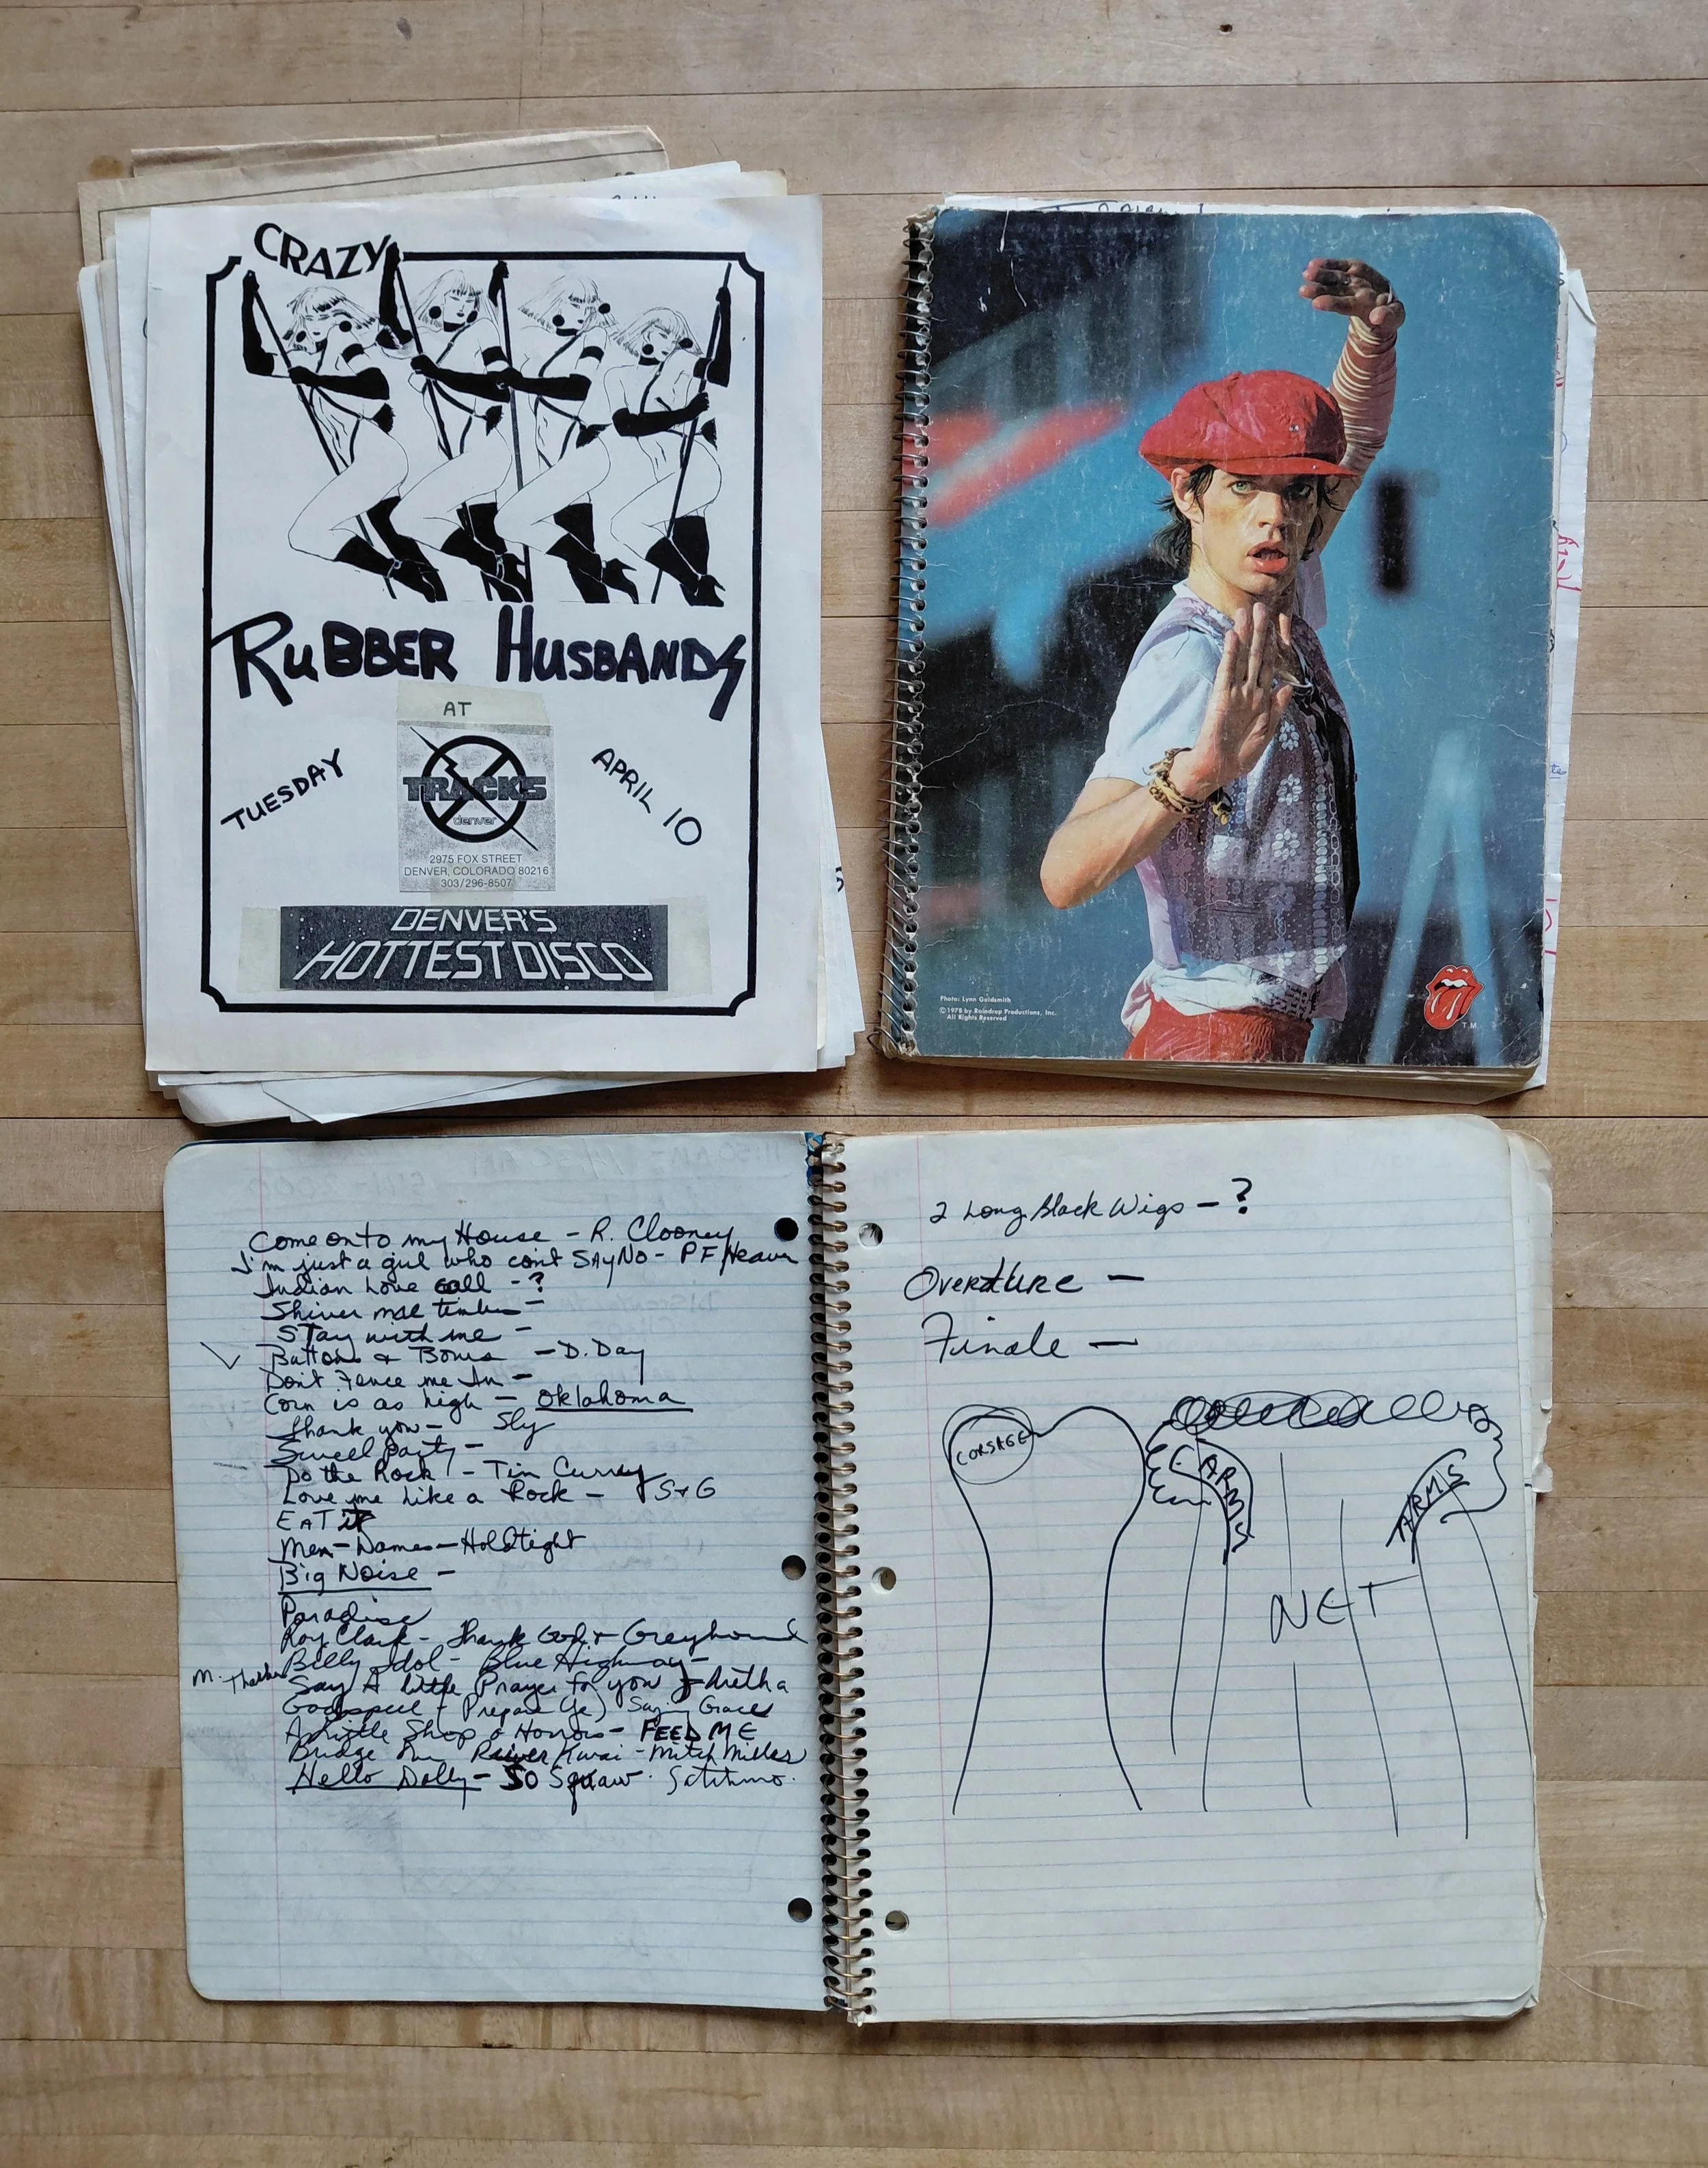 CRAZY
RUBBER HUSBANDS
AT
TUESDAY
TRACKS
denver
APRIL 10
2975 FOX STREET
DENVER, COLORADO 80216
303/296-8507
DENVER'S
HOTTEST DISCO
Photo: Lynn Goldsmith
©1978 by Raindrop Productions, Inc.
All Rights Reserved
T.M.
Come onto my House - R. Clooney
I'm just a girl who can't SAY NO - PF/Heaven
Indian Love call - ?
Shiver mee timbers -
Stay with me -
Buttons & Bows - D. Day
Don't Fence me In -
Corn is as high - Oklahoma
Thank you - Sly
Swell party -
Do the Rock - Tim Curry
Love me Like a Rock - S+G
EAT it
Men - Dames - Hold tight
Big Noise -
Paradise
Roy Clark - Thank God & Greyhound
Billy Idol - Blue Highway -
M. Say A little Prayer for you Aretha
Godspell - Prepare Ye) Saying Graces
A Little Shop o Horrors - FEED ME
Bridge On River Kwai - Mitch Miller
Hello Dolly - So Squaw. Satchmo.
2 Long Black Wigs - ?
Overture -
Finale -
CORSAGE
ARMS
ARMS
NET